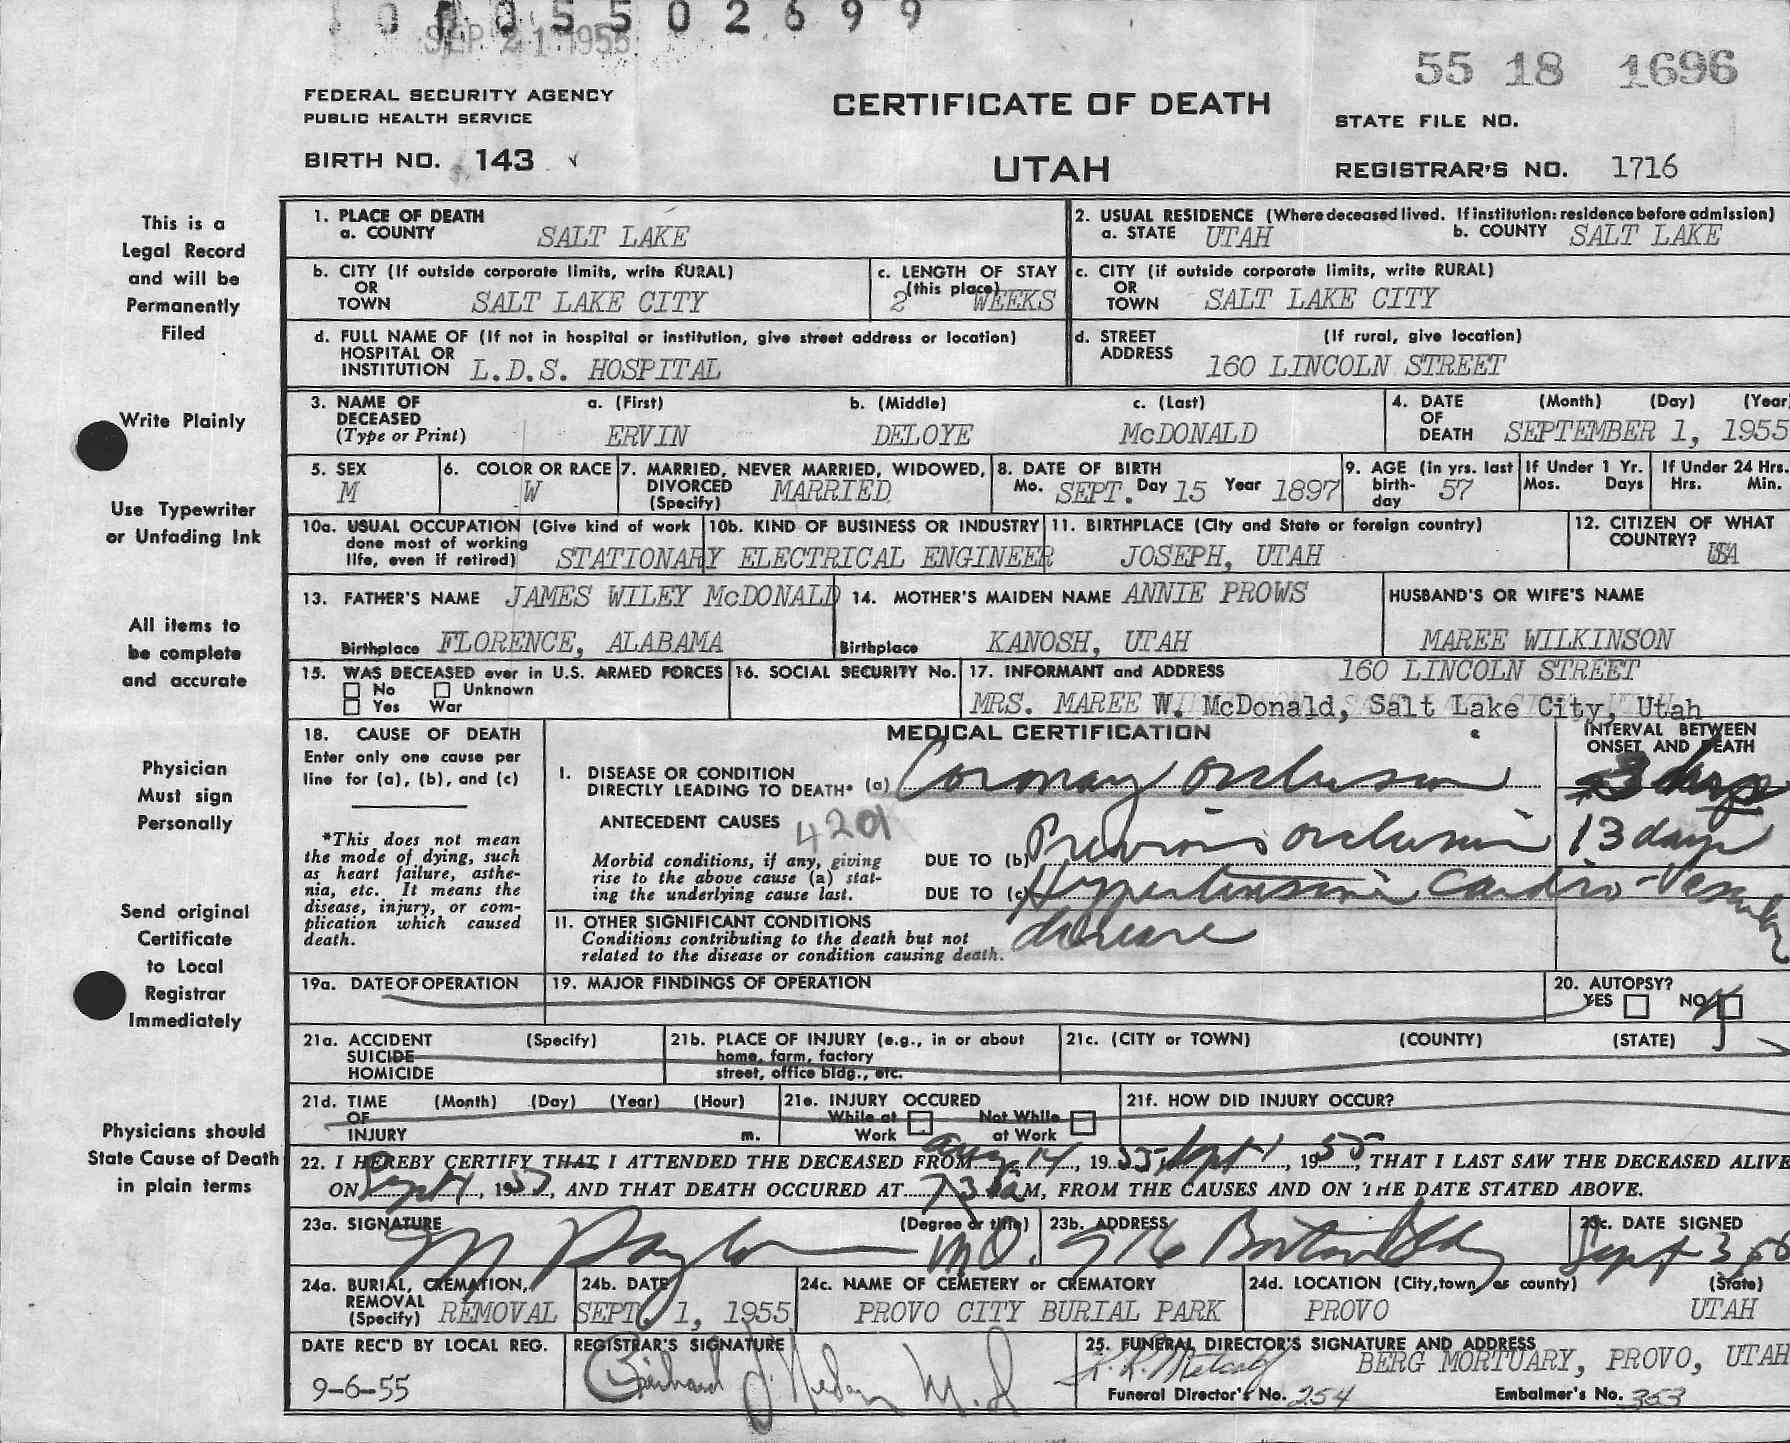 1 0 0 0 5 5 0 2 6 9 9
SEP 21 1955
55 18 1696
FEDERAL SECURITY AGENCY
PUBLIC HEALTH SERVICE
CERTIFICATE OF DEATH
STATE FILE NO.
BIRTH NO. 143
UTAH
REGISTRAR'S NO. 1716
This is a
Legal Record
and will be
Permanently
Filed
Write Plainly
Use Typewriter
or Unfading Ink
All items to
be complete
and accurate
Physician
Must sign
Personally
Send original
Certificate
to Local
Registrar
Immediately
Physicians should
State Cause of Death
in plain terms
1. PLACE OF DEATH
a. COUNTY SALT LAKE
2. USUAL RESIDENCE (Where deceased lived. If institution: residence before admission)
a. STATE UTAH b. COUNTY SALT LAKE
b. CITY (If outside corporate limits, write RURAL)
OR
TOWN SALT LAKE CITY
c. LENGTH OF STAY
(this place)
2 WEEKS
c. CITY (if outside corporate limits, write RURAL)
OR
TOWN SALT LAKE CITY
d. FULL NAME OF (If not in hospital or institution, give street address or location)
HOSPITAL OR
INSTITUTION L.D.S. HOSPITAL
d. STREET (If rural, give location)
ADDRESS 160 LINCOLN STREET
3. NAME OF a. (First) b. (Middle) c. (Last)
DECEASED
(Type or Print) ERVIN DELOYE McDONALD
4. DATE (Month) (Day) (Year
OF
DEATH SEPTEMBER 1, 1955
5. SEX
M
6. COLOR OR RACE
W
7. MARRIED, NEVER MARRIED, WIDOWED,
DIVORCED MARRIED
(Specify)
8. DATE OF BIRTH
Mo. SEPT. Day 15 Year 1897
9. AGE (in yrs. last
birth- 57
day
If Under 1 Yr.
Mos. Days
If Under 24 Hrs.
Hrs. Min.
10a. USUAL OCCUPATION (Give kind of work
done most of working
life, even if retired) STATIONARY ELECTRICAL ENGINEER
10b. KIND OF BUSINESS OR INDUSTRY
11. BIRTHPLACE (City and State or foreign country)
JOSEPH, UTAH
12. CITIZEN OF WHAT
COUNTRY?
USA
13. FATHER'S NAME JAMES WILEY McDONALD
Birthplace FLORENCE, ALABAMA
14. MOTHER'S MAIDEN NAME ANNIE PROWS
Birthplace KANOSH, UTAH
HUSBAND'S OR WIFE'S NAME
MAREE WILKINSON
15. WAS DECEASED ever in U.S. ARMED FORCES
No Unknown
Yes War
16. SOCIAL SECURITY No.
17. INFORMANT and ADDRESS 160 LINCOLN STREET
MRS. MAREE W. McDonald, Salt Lake City, Utah
18. CAUSE OF DEATH
Enter only one cause per
line for (a), (b), and (c)
*This does not mean
the mode of dying, such
as heart failure, asthe-
nia, etc. It means the
disease, injury, or com-
plication which caused
death.
MEDICAL CERTIFICATION
INTERVAL BETWEEN
ONSET AND DEATH
I. DISEASE OR CONDITION
DIRECTLY LEADING TO DEATH* (a) Coronary occlusion
3 days
ANTECEDENT CAUSES 4201
Morbid conditions, if any, giving
rise to the above cause (a) stat-
ing the underlying cause last.
DUE TO (b) Previous occlusion 13 days
DUE TO (c) Hypertensive Cardio-Vascular
disease
II. OTHER SIGNIFICANT CONDITIONS
Conditions contributing to the death but not
related to the disease or condition causing death.
19a. DATE OF OPERATION
19. MAJOR FINDINGS OF OPERATION
20. AUTOPSY?
YES NO
21a. ACCIDENT (Specify)
SUICIDE
HOMICIDE
21b. PLACE OF INJURY (e.g., in or about
home, farm, factory
street, office bldg., etc.
21c. (CITY or TOWN) (COUNTY) (STATE)
21d. TIME (Month) (Day) (Year) (Hour)
OF
INJURY m.
21e. INJURY OCCURED
While at Not While
Work at Work
21f. HOW DID INJURY OCCUR?
22. I HEREBY CERTIFY THAT I ATTENDED THE DECEASED FROM Aug 14, 1955, Sept 1, 1955, THAT I LAST SAW THE DECEASED ALIVE
ON Sept 1, 1955, AND THAT DEATH OCCURED AT 7 30 AM, FROM THE CAUSES AND ON THE DATE STATED ABOVE.
23a. SIGNATURE (Degree or title)
M.D.
23b. ADDRESS
916 Boston Bldg
23c. DATE SIGNED
Sept 3, 55
24a. BURIAL, CREMATION,
REMOVAL
(Specify) REMOVAL
24b. DATE
SEPT. 1, 1955
24c. NAME OF CEMETERY or CREMATORY
PROVO CITY BURIAL PARK
24d. LOCATION (City, town, or county) (State)
PROVO UTAH
DATE REC'D BY LOCAL REG.
9-6-55
REGISTRAR'S SIGNATURE
M.D.
25. FUNERAL DIRECTOR'S SIGNATURE AND ADDRESS
R. R. Metcalf BERG MORTUARY, PROVO, UTAH
Funeral Director's No. 254 Embalmer's No. 353